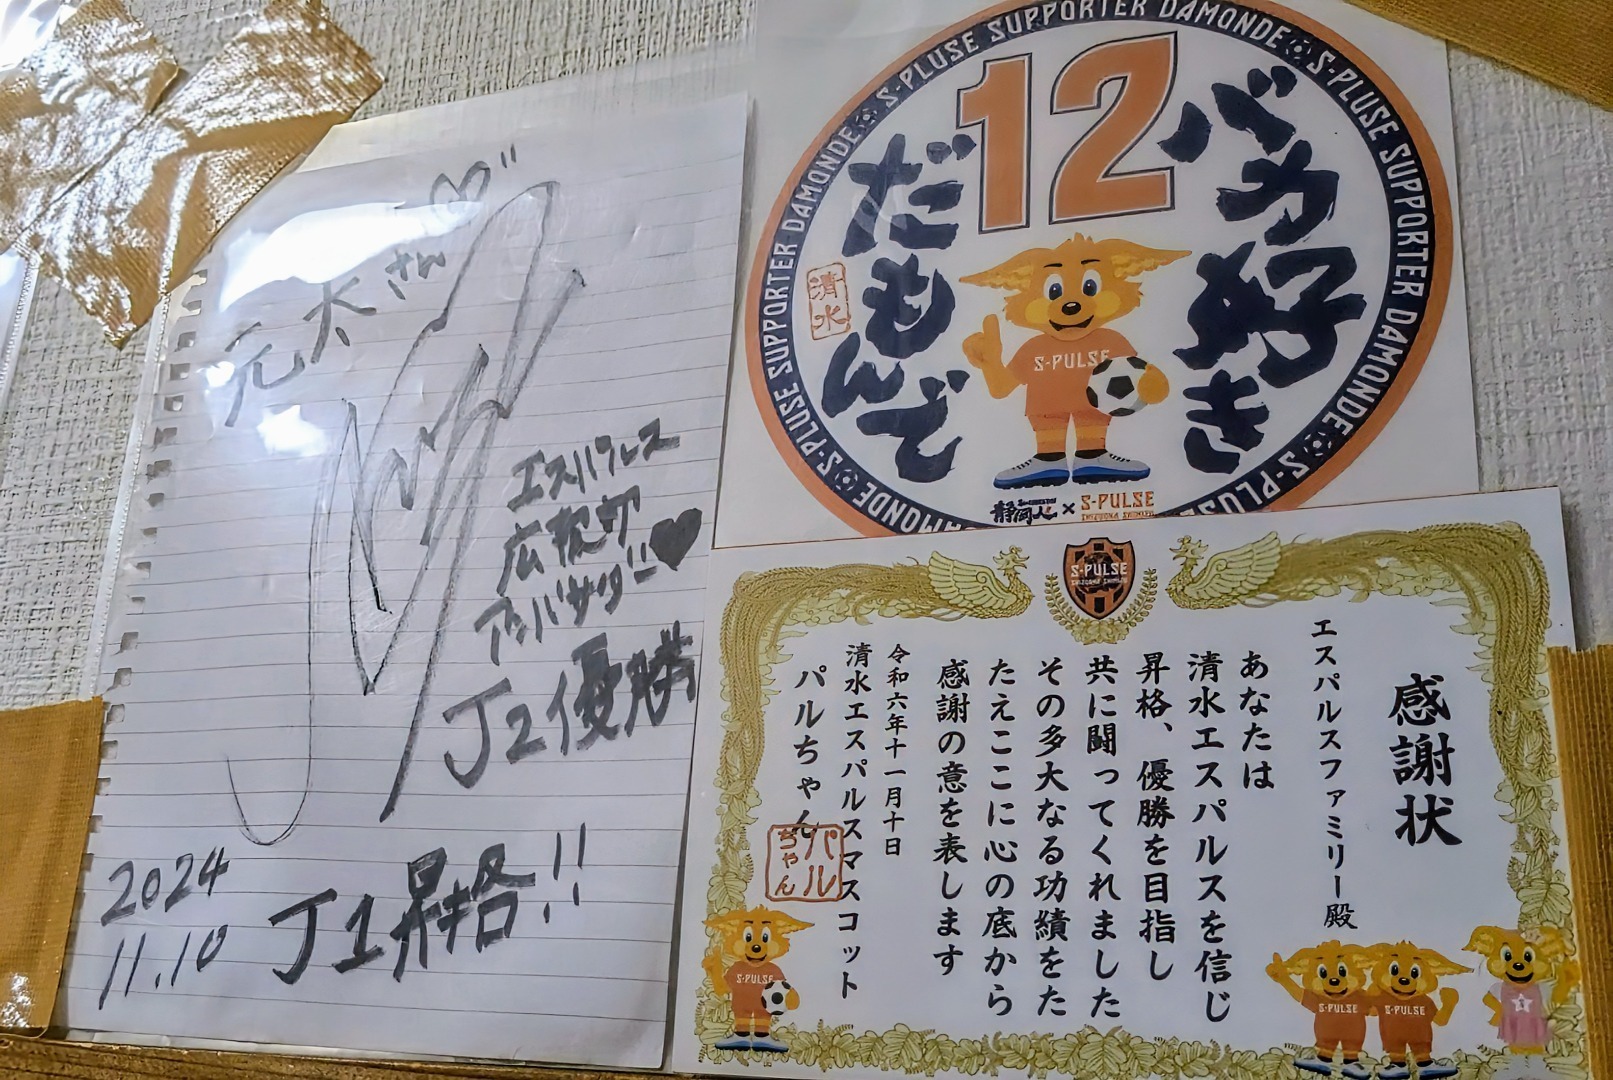 元太さん
エスパルス
広報部
アンバサダー!!
J2優勝
J1昇格!!
2024
11.10
S-PLUSE SUPPORTER DAMONDE S-PLUSE SUPPORTER DAMONDE S-PLUSE SUPPORTER DAMONDE S-PLUSE SUPPORTER DAMONDE
12
バカ好き
だもんで
清水
S-PULSE
静岡人 × S-PULSE
SHIZUOKA SHIMIZU
S-PULSE
SHIZUOKA SHIMIZU
感謝状
エスパルスファミリー 殿
あなたは
清水エスパルスを信じ
昇格、優勝を目指し
共に闘ってくれました
その多大なる功績をた
たえここに心の底から
感謝の意を表します
令和六年十一月十日
清水エスパルスマスコット
パルちゃん
パルちゃん
S-PULSE
S-PULSE
S-PULSE